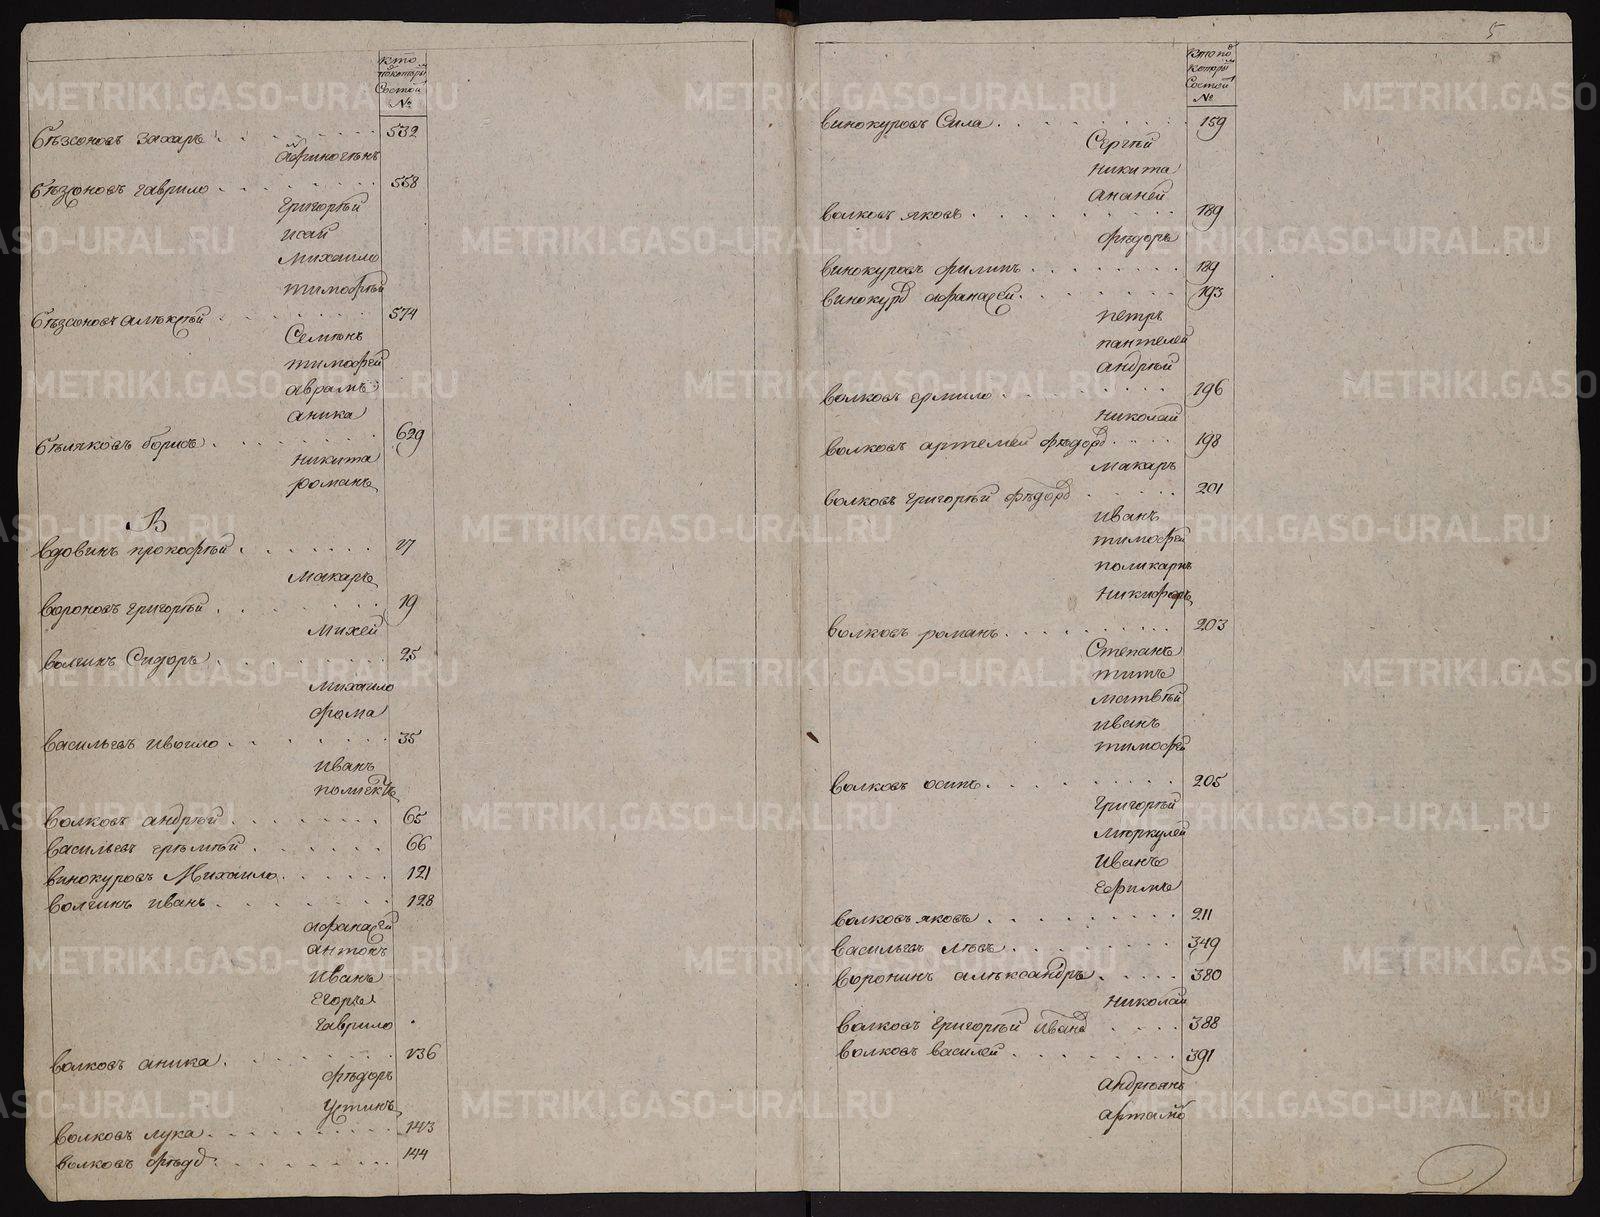 кто
по которы
Состои
№
бѣзсоновъ захаръ 532
афиногѣнъ
бѣзсоновъ гаврило 558
григорѣй
исай
михаило
тимофѣй
бѣзсоновъ алѣксѣй 574
Семѣнъ
тимофей
аврамъ
аника
бѣляковъ борисъ 629
никита
романъ
В
вдовинъ прокофѣй 17
макаръ
вороновъ григорѣй 19
михей
волгинъ Сидоръ 25
михаило
фома
васильевъ иваило 35
иванъ
полиектъ
волковъ андрѣй 65
васильевъ ерѣмѣй 66
винокуровъ Михаило 121
волгинъ иванъ 128
афанасей
антонъ
иванъ
Егоръ
гаврило
волковъ аника 136
фѣдоръ
устинъ
волковъ лука 143
волковъ фѣдо 144
5
кто по
которы
Состои
№
винокуровъ Сила 159
Сергѣй
никита
ананей
волковъ яковъ 189
фѣдоръ
винокуровъ филипъ 189
винокуро афанасей 193
петръ
пантелей
андрѣй
волковъ ермило 196
николай
волковъ артемей фѣдоро 198
макаръ
волковъ григорѣй фѣдоро 201
иванъ
тимофей
поликарпъ
никифоръ
волковъ романъ 203
Степанъ
титъ
матвѣй
иванъ
тимофей
волковъ осипъ 205
григорѣй
мѣркулей
иванъ
ефимъ
волковъ яковъ 211
васильевъ лѣвъ 349
воронинъ алѣксандръ 380
николай
волковъ григорѣй ивано 388
волковъ василей 391
андрѣянъ
артамо
METRIKI.GASO-URAL.RU